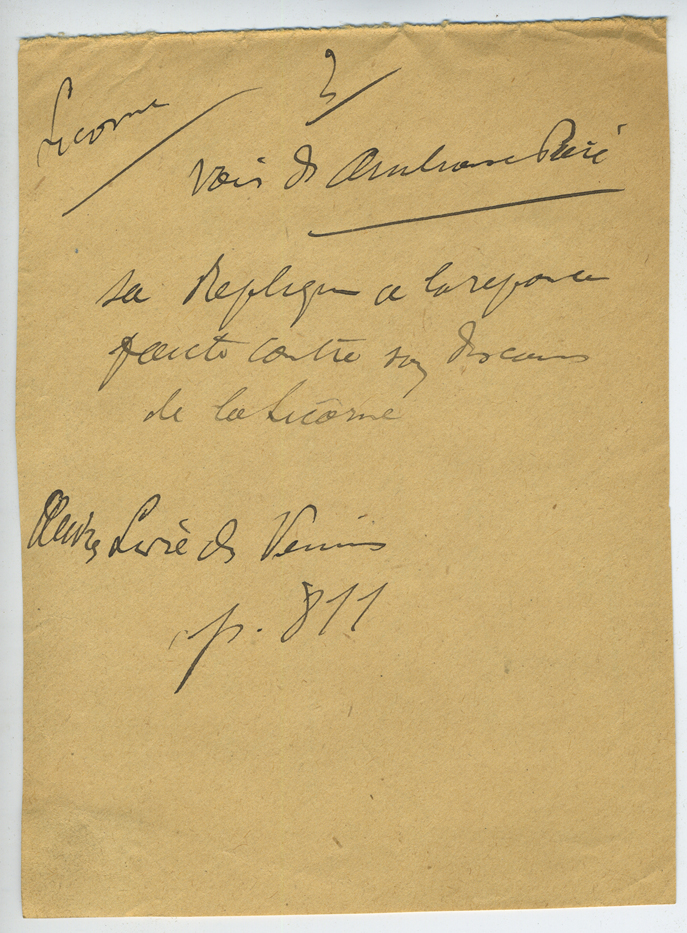 Licorne
3
Voir d'Ambroise Paré
sa Replique a la reponce
faicte contre son discours
de la Licorne
Livre des Venins
p. 811